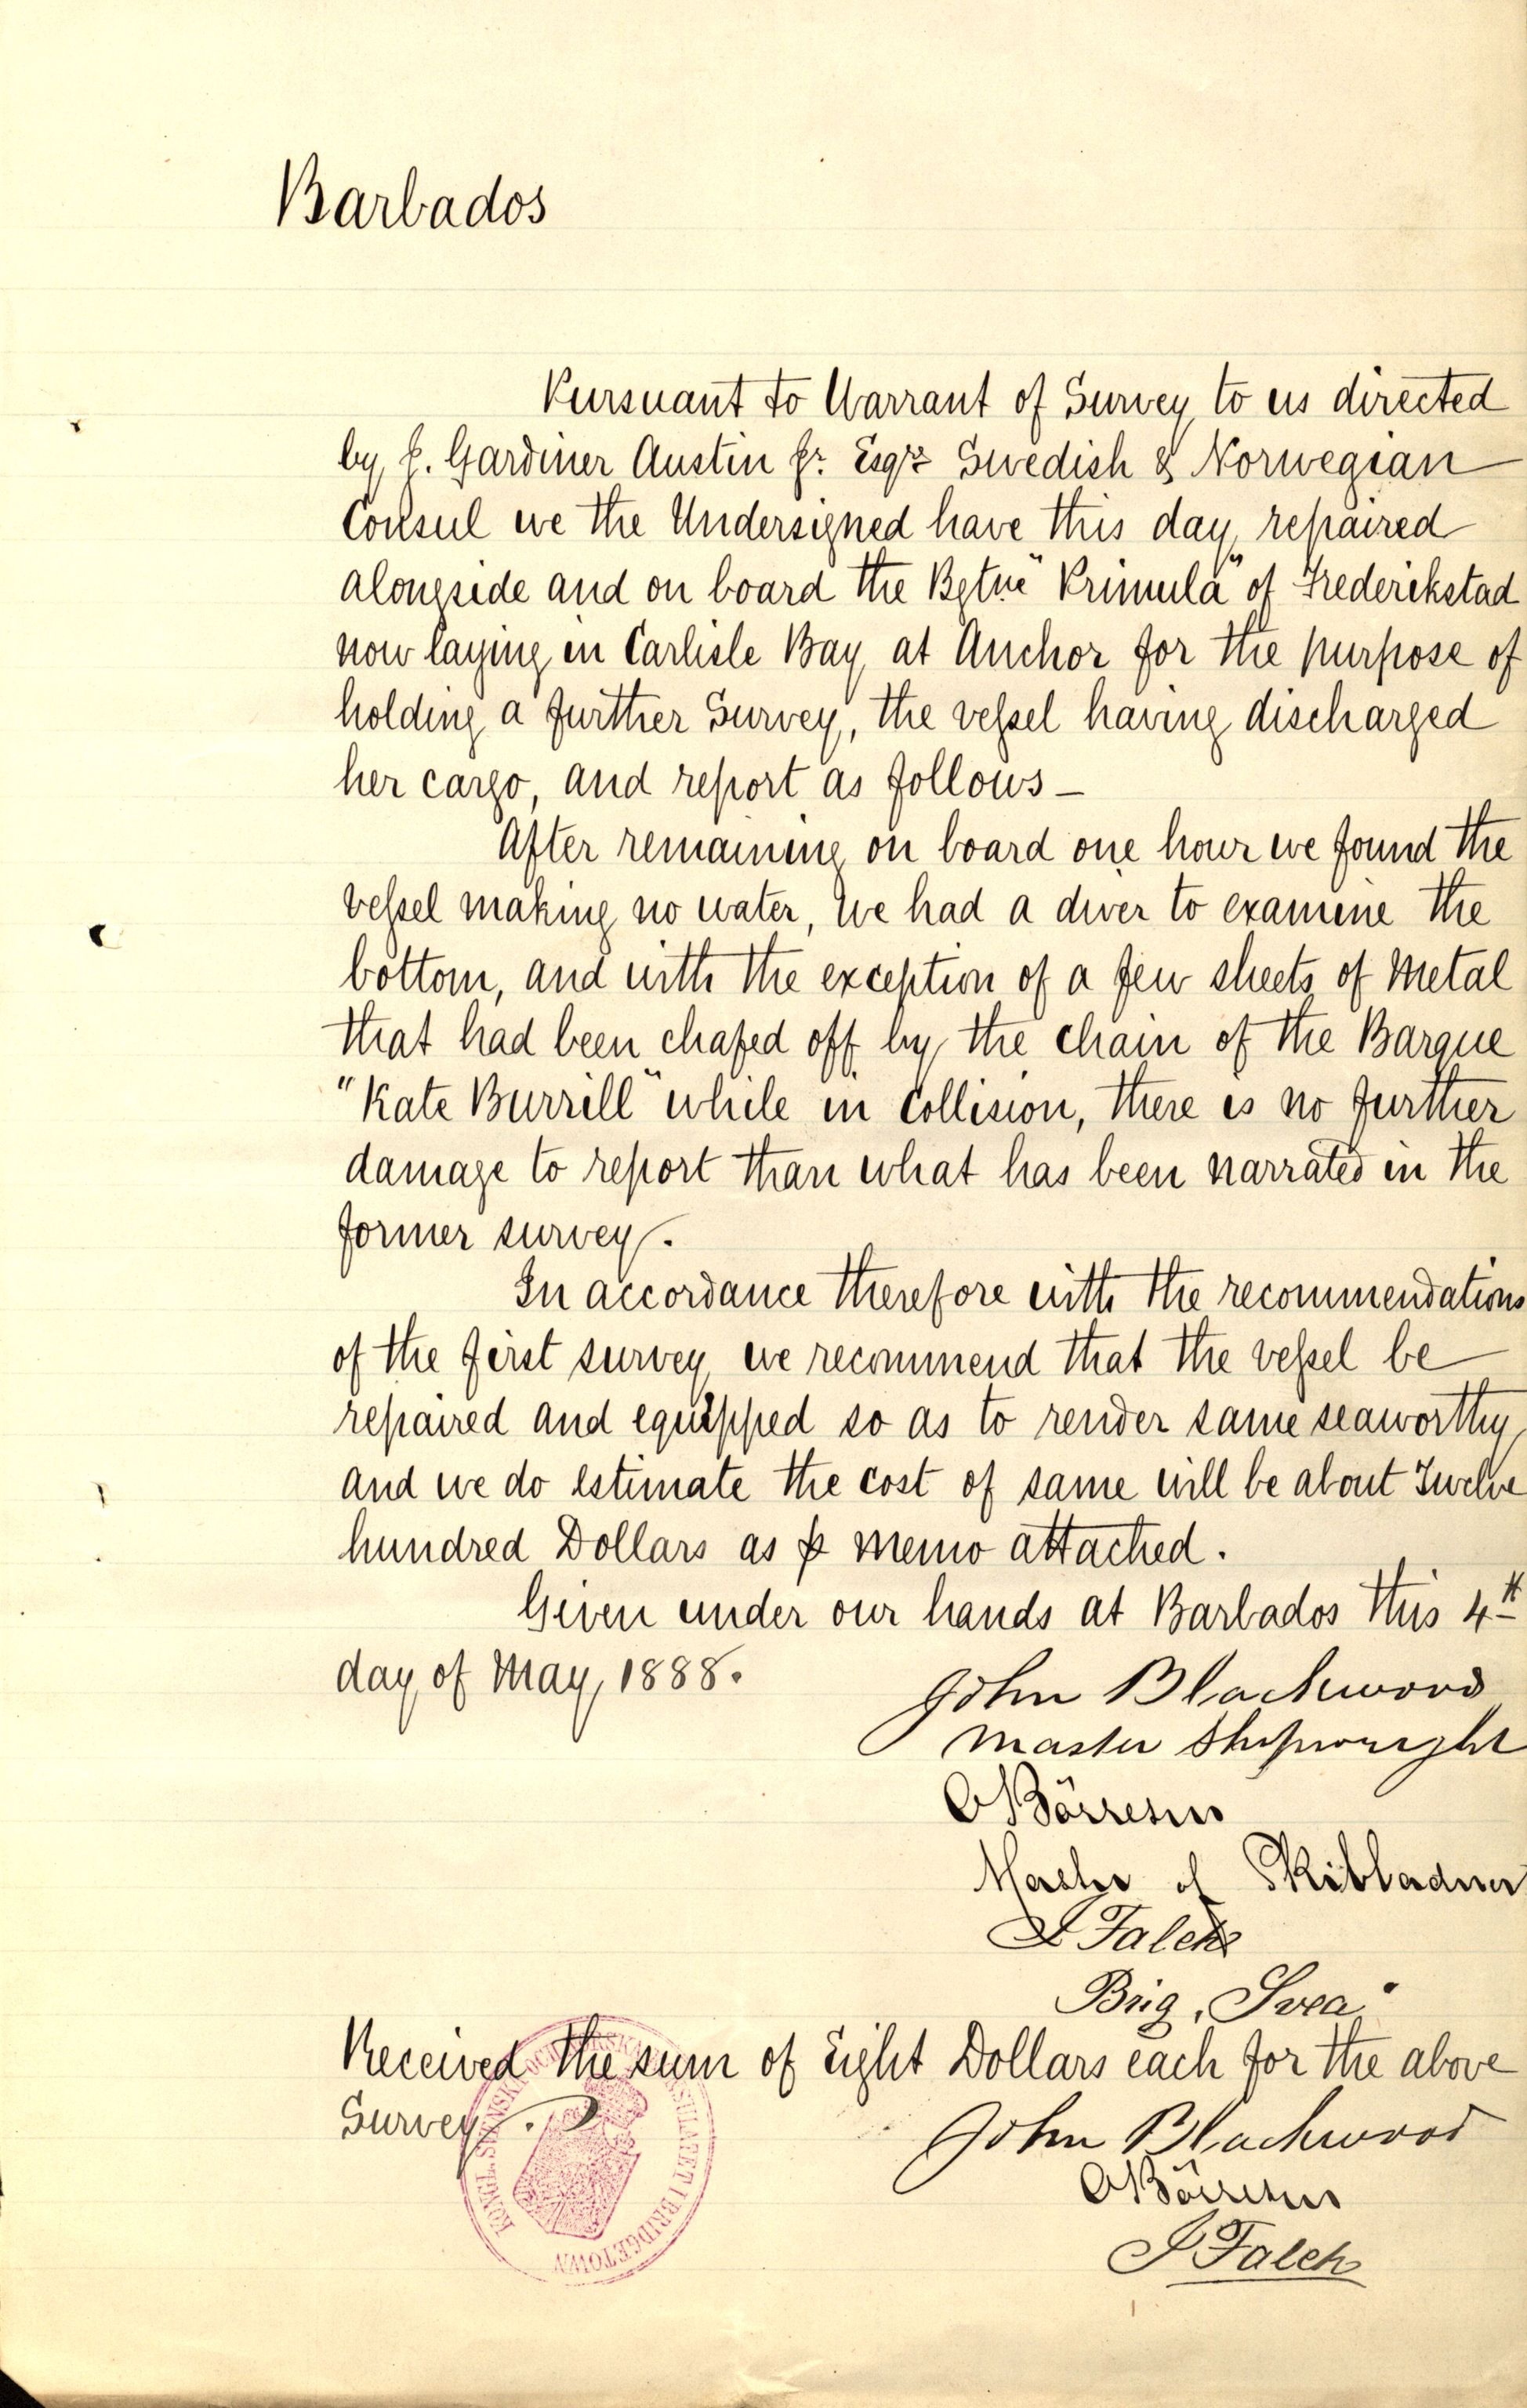 Barbados
Pursuant to Warrant of Survey to us directed
by J. Gardiner Austin Jr. Esqre Swedish & Norwegian
Consul we the Undersigned have this day repaired
alongside and on board the Bgtne "Primula" of Frederikstad
now laying in Carlisle Bay at Anchor for the purpose of
holding a further Survey, the vessel having discharged
her cargo, and report as follows —
After remaining on board one hour we found the
vessel making no water, we had a diver to examine the
bottom, and with the exception of a few sheets of Metal
that had been chafed off by the chain of the Barque
"Kate Burrill" while in collision, there is no further
damage to report than what has been narrated in the
former survey.
In accordance therefore with the recommendations
of the first survey we recommend that the vessel be
repaired and equipped so as to render same seaworthy
and we do estimate the cost of same will be about Twelve
hundred Dollars as ⅌ memo attached.
Given under our hands at Barbados this 4th
day of May, 1888.
John Blackwood
Master Shipwright
O Börresen
Master of Skibladner
J Falck
Brig „Svea"
Received the sum of Eight Dollars each for the above
Survey.
John Blackwood
O Börresen
J Falck
KONGL. SVENSKA OCH NORSKA KONSULATET I BRIDGETOWN